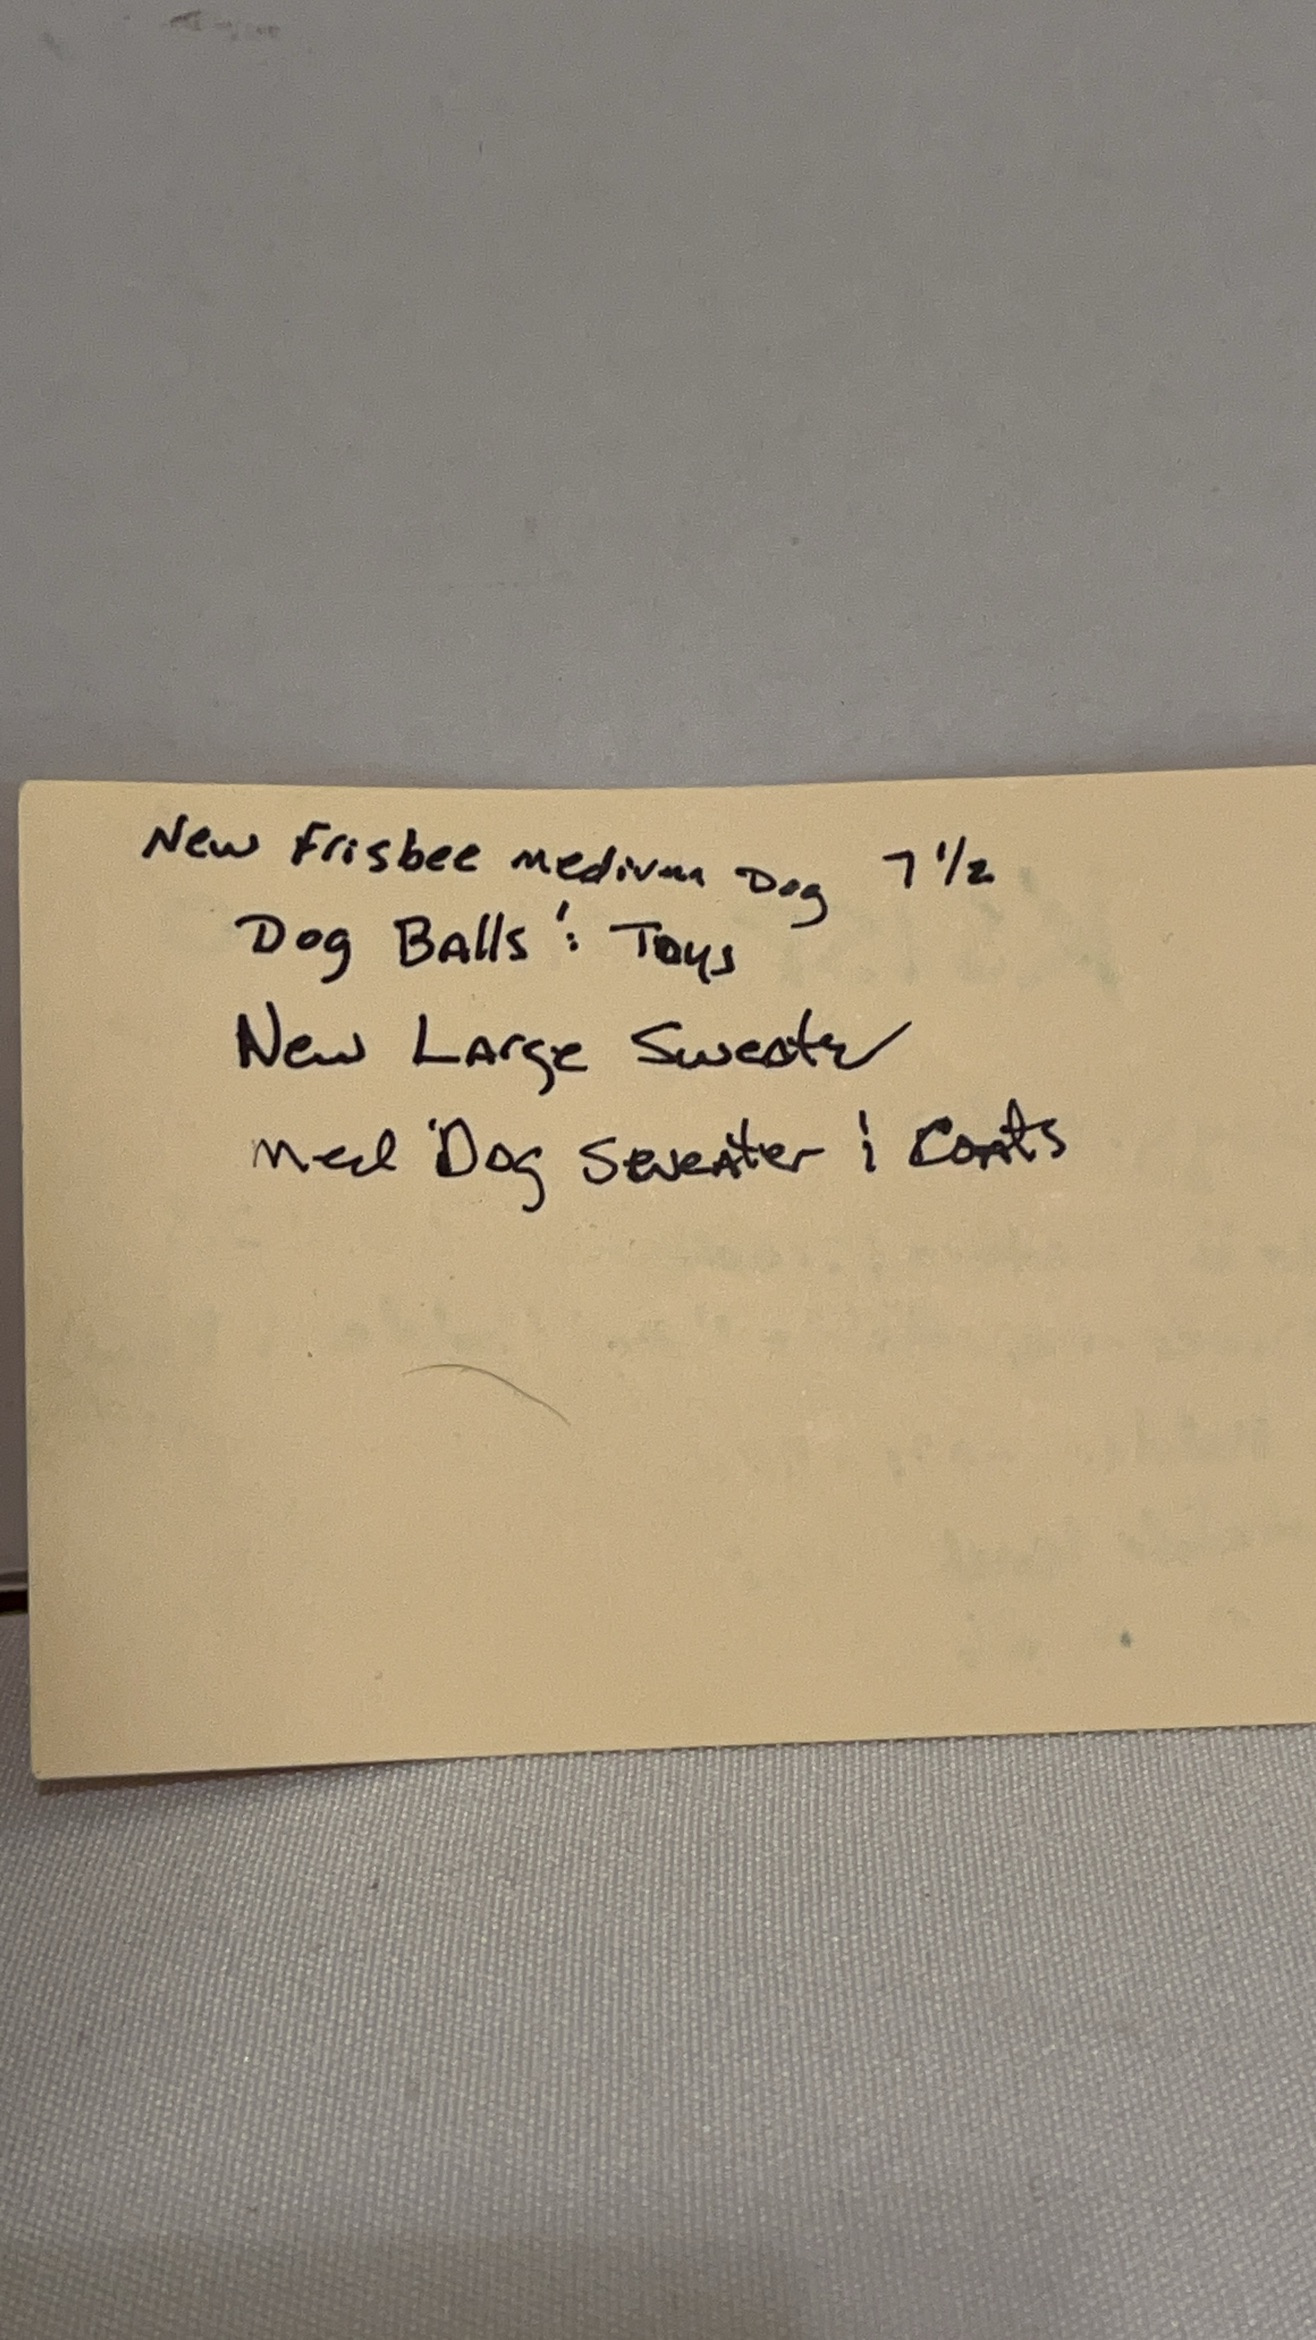 New Frisbee medium Dog 7 1/2
Dog Balls & Toys
New Large Sweater
med Dog Sweater & Coats